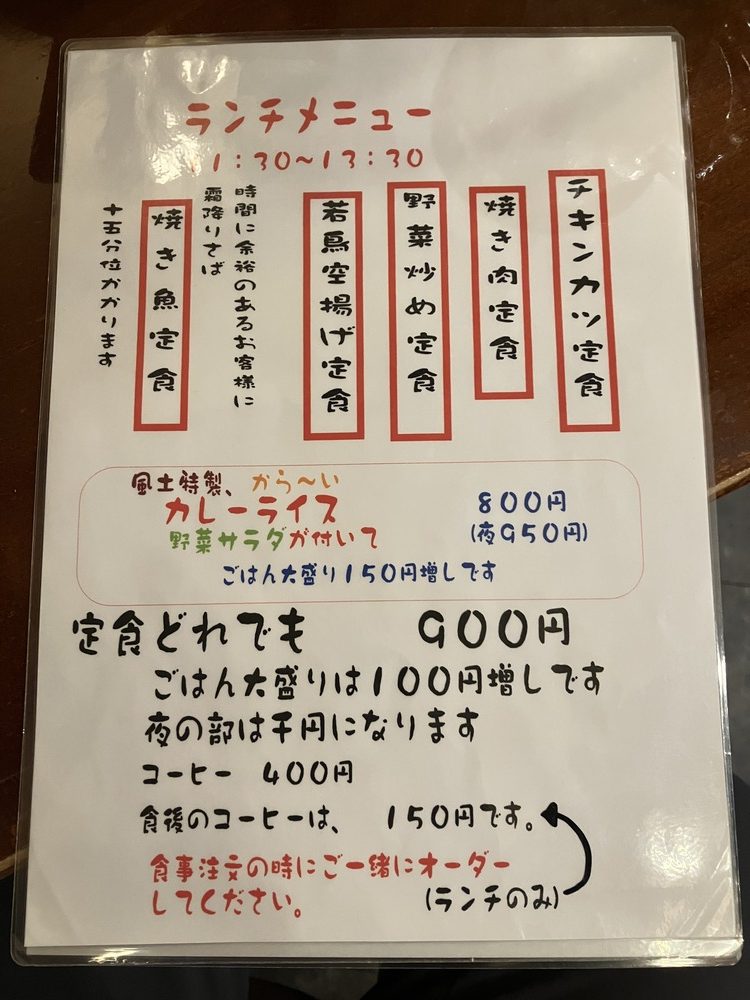 ランチメニュー
11:30~13:30
チキンカツ定食
焼き肉定食
野菜炒め定食
若鳥空揚げ定食
時間に余裕のあるお客様に
霜降りさば
焼き魚定食
十五分位かかります
風土特製、から~い
カレーライス 800円
野菜サラダが付いて (夜950円)
ごはん大盛り150円増しです
定食どれでも 900円
ごはん大盛りは100円増しです
夜の部は千円になります
コーヒー 400円
食後のコーヒーは、 150円です。
食事注文の時にご一緒にオーダー
してください。 (ランチのみ)